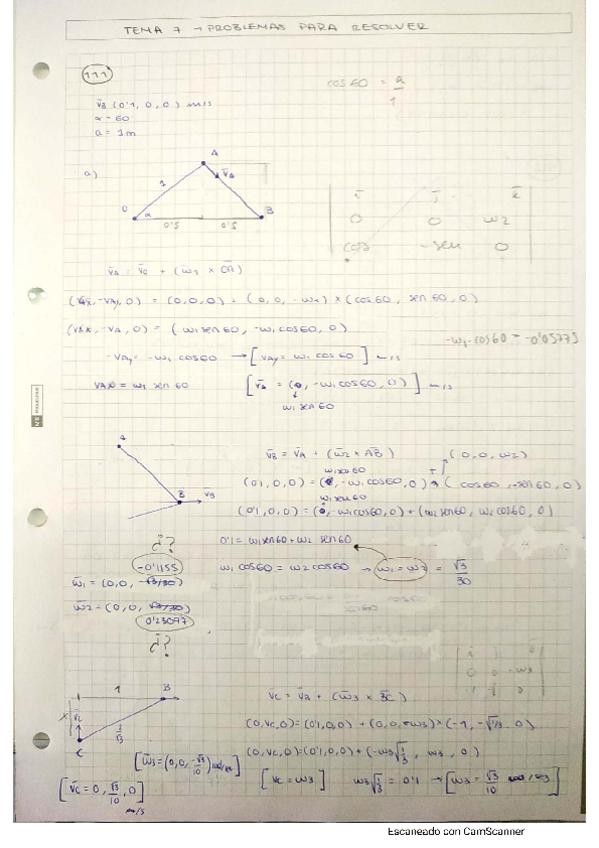 TEMA 7 → PROBLEMAS PARA RESOLVER
111
cos 60 = a/1
v̄B (0'1, 0, 0) m/s
α = 60
a = 1m
a)
A
1
v̄A
O
α
B
0'5
0'5
ī j̄ k̄
0 0 ω2
cos -sen 0
v̄A = v̄O + (ω̄1 × ŌĀ)
(vAx, -vAy, 0) = (0,0,0) + (0, 0, -ω1) × (cos 60, sen 60, 0)
(vAx, -vA, 0) = (ω1 sen 60, -ω1 cos 60, 0)
-ω1 · cos 60 = -0'05773
-vAy = -ω1 cos 60 → [vAy = ω1 cos 60] m/s
vAx = ω1 sen 60
[v̄A = (0, -ω1 cos 60, 0)] m/s
ω1 sen 60
A
B
v̄B
v̄B = v̄A + (ω̄2 × ĀB̄)
(0, 0, ω2)
ω1 sen 60
(0'1, 0, 0) = (0, -ω1 cos 60, 0) + (cos 60, -sen 60, 0)
ω1 sen 60
(0'1, 0, 0) = (0, -ω1 cos 60, 0) + (ω2 sen 60, ω2 cos 60, 0)
¿?
0'1 = ω1 sen 60 + ω2 sen 60
-0'1155
ω1 cos 60 = ω2 cos 60 → ω1 = ω2 = √3/30
ω̄1 = (0, 0, √3/30)
ω̄2 = (0, 0, √3/30)
0'23097
¿?
1
B
v̄C
1/√3
C
v̄C = v̄B + (ω̄3 × B̄C̄)
(0, vC, 0) = (0'1, 0, 0) + (0, 0, -ω3) × (-1, -√1/3, 0)
(0, vC, 0) = (0'1, 0, 0) + (-ω3 √1/3, ω3, 0)
[ω̄3 = (0, 0, -√3/10) rad/s]
[vC = ω3]
ω3 √1/3 = 0'1 → [ω3 = √3/10 rad/s]
[v̄C = 0, √3/10, 0] m/s
Escaneado con CamScanner